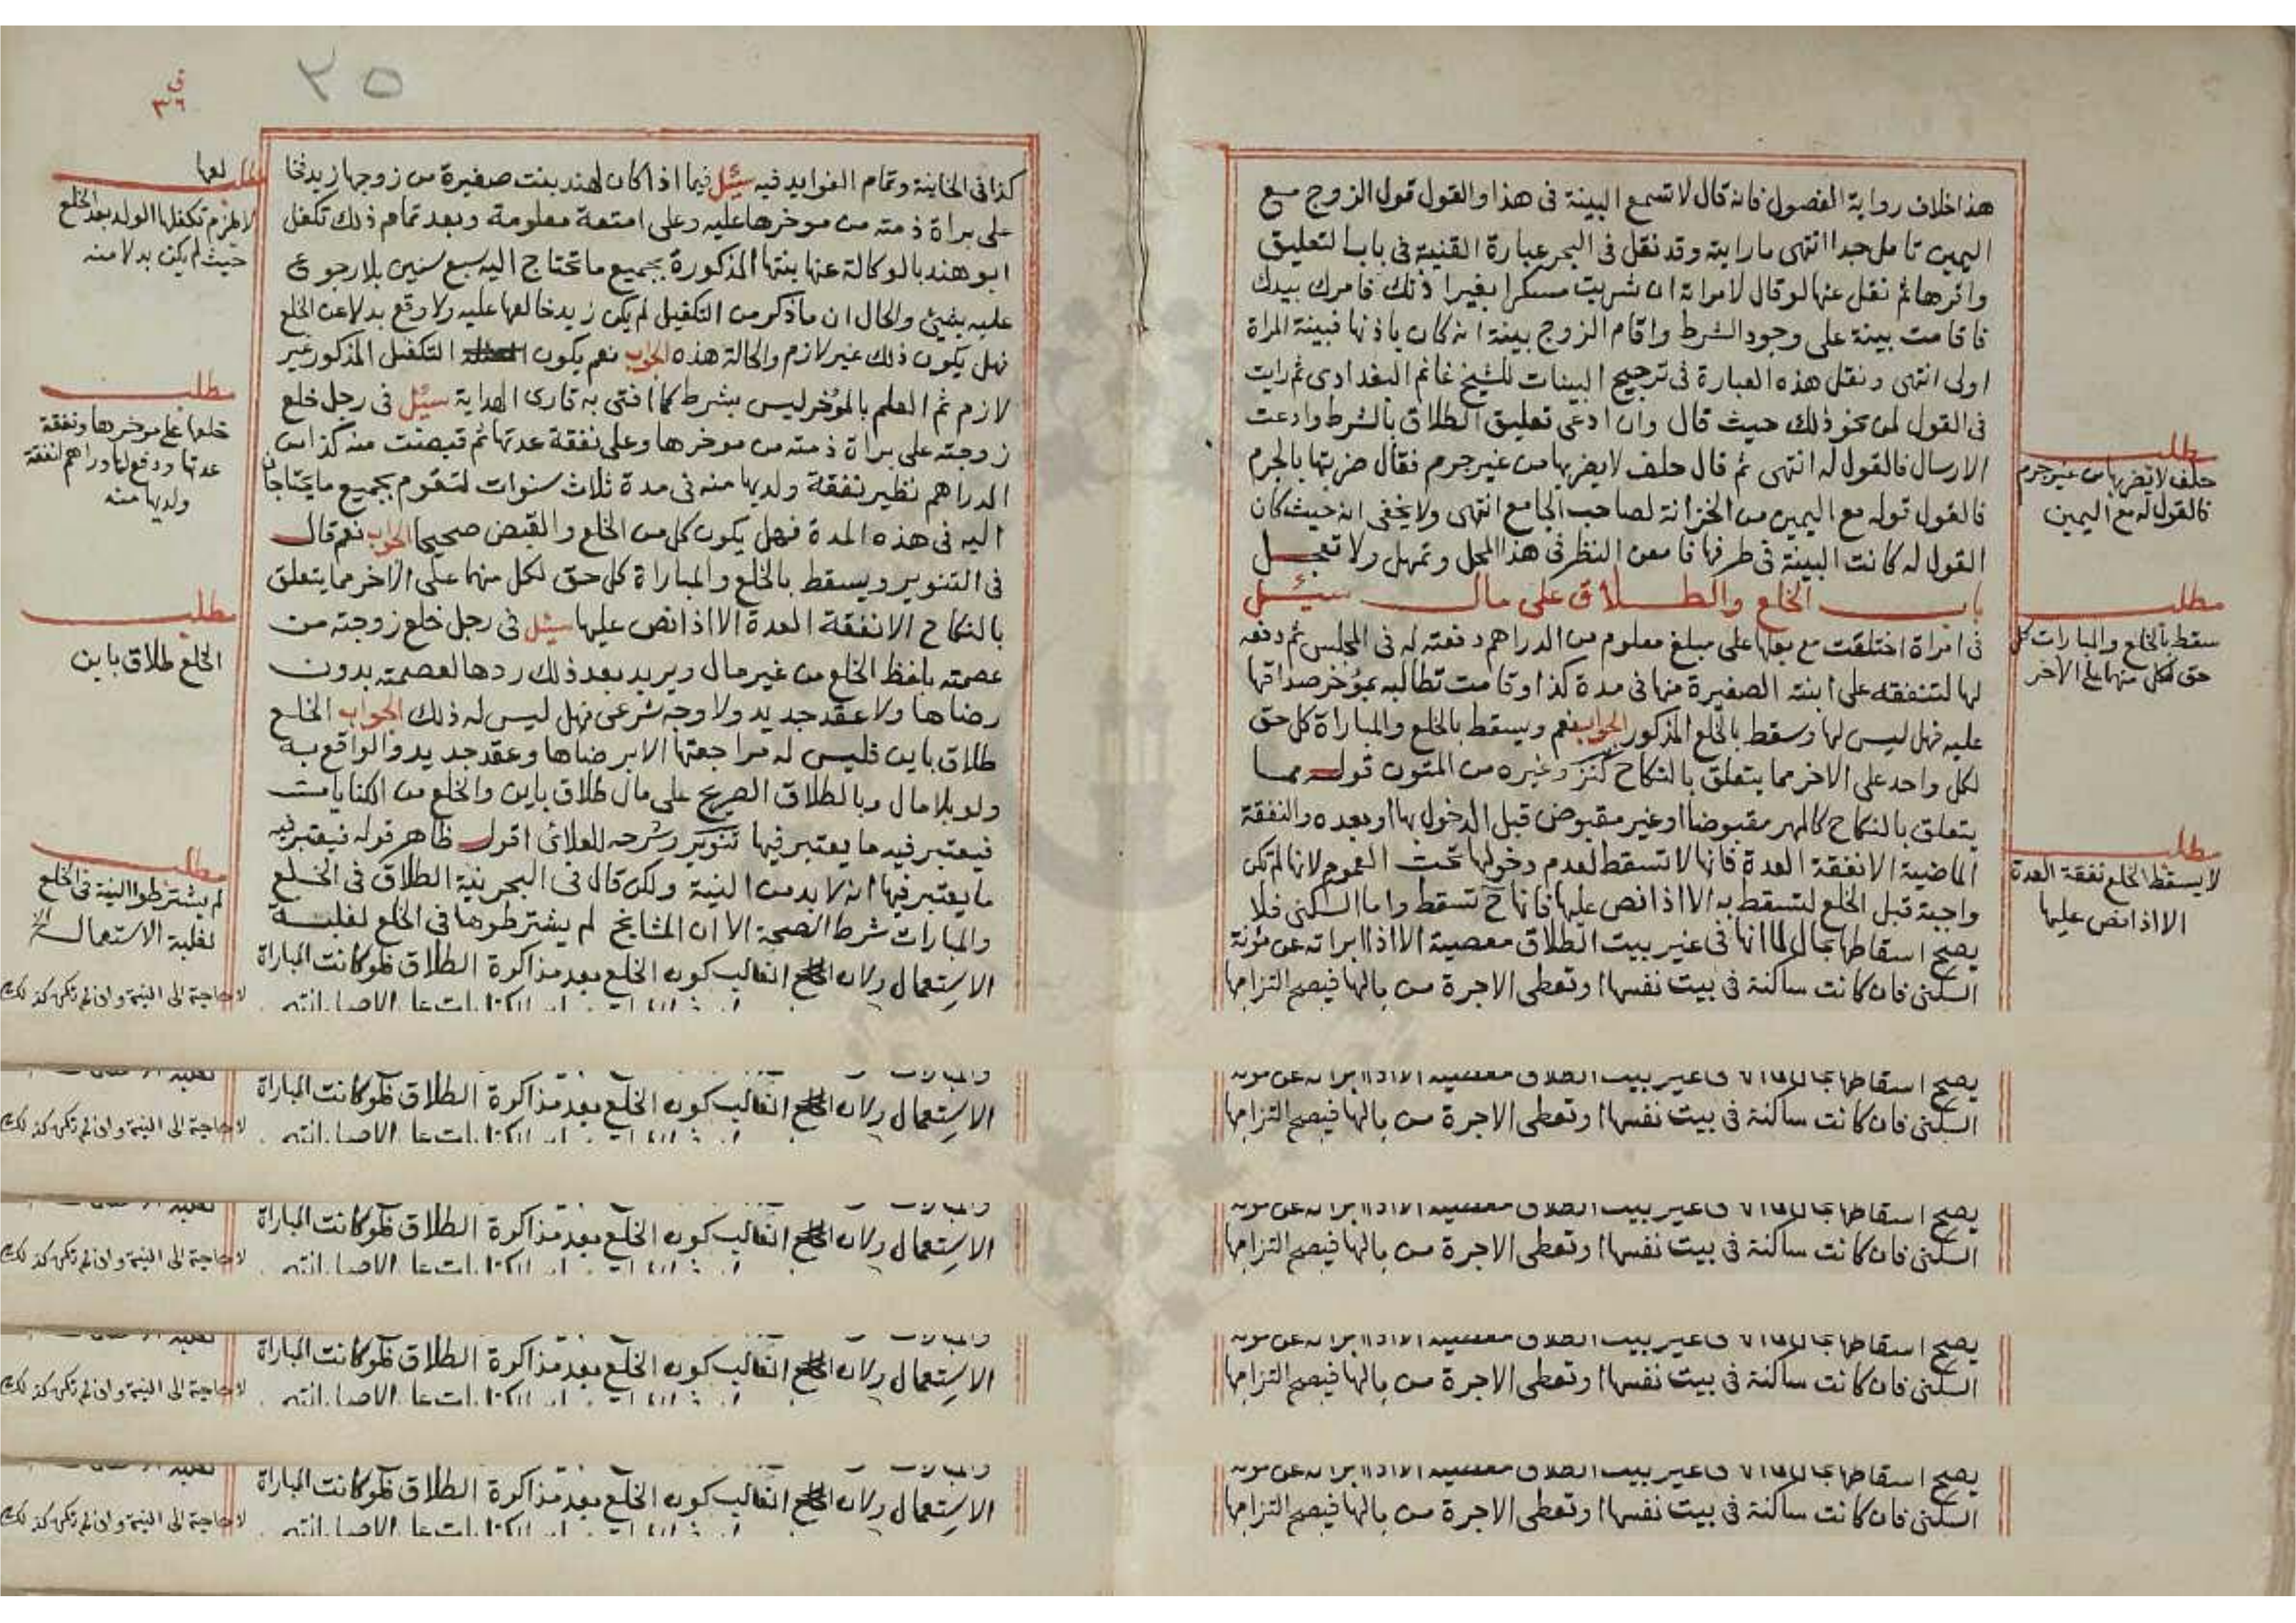 هذا خلاف رواية الفصول فانه قال لا تسمع البينة فى هذا والقول قول الزوج مع
اليمين تامل جدا انتهى ما رايته وقد نقل فى البحر عبارة القنية فى باب التعليق
واقرها ثم نقل عنها لو قال لامراته ان شربت مسكرا بغير اذنك فامرك بيدك
فاقامت بينة على وجود الشرط واقام الزوج بينة انه كان باذنها فبينة المراة
اولى انتهى ونقل هذه العبارة فى ترجيح البينات للشيخ غانم البغدادى ثم رايت
فى القول لمن نحو ذلك حيث قال وان ادعى تعليق الطلاق بالشرط وادعت
الارسال فالقول له انتهى ثم قال حلف لا يضربها من غير جرم فقال ضربتها بالجرم
فالقول قوله مع اليمين من الخزانة لصاحب الجامع انتهى ولا يخفى انه حيث كان
القول له كانت البينة فى طرفها فامعن النظر فى هذا المحل وتمهل ولا تعجل
باب الخلع والطلاق على مال سئل
فى امراة اختلعت مع بعلها على مبلغ معلوم من الدراهم دفعته له فى المجلس ثم دفعه
لها لتنفقه على ابنته الصغيرة منها فى مدة كذا وقامت تطالبه بمؤخر صداقها
عليه فهل ليس لها وسقط بالخلع المذكور الجواب نعم ويسقط بالخلع والمباراة كل حق
لكل واحد على الاخر مما يتعلق بالنكاح كنز وغيره من المتون قوله مما
يتعلق بالنكاح كالمهر مقبوضا او غير مقبوض قبل الدخول بها او بعده والنفقة
الماضية الا نفقة العدة فانها لا تسقط لعدم دخولها تحت العموم لانها لم تكن
واجبة قبل الخلع لتسقط به الا اذا نص عليها فانها ح تسقط واما السكنى فلا
يصح اسقاطها بحال لما انها فى غير بيت الطلاق معصية الا اذا ابراته عن مؤنة
السكنى فان كانت ساكنة فى بيت نفسها او تعطى الاجرة من مالها فيصح التزامها
مطلب
حلف لا يضربها من غير جرم
فالقول له مع اليمين
مطلب
سقط بالخلع والمبارات كل
حق لكل منهما على الاخر
مطلب
لا يسقط الخلع نفقة العدة
الا اذا نص عليها
السكنى فان كانت ساكنة فى بيت نفسها او تعطى الاجرة من مالها فيصح التزامها
السكنى فان كانت ساكنة فى بيت نفسها او تعطى الاجرة من مالها فيصح التزامها
السكنى فان كانت ساكنة فى بيت نفسها او تعطى الاجرة من مالها فيصح التزامها
السكنى فان كانت ساكنة فى بيت نفسها او تعطى الاجرة من مالها فيصح التزامها
٣٥
٣٦
كذا فى الخانية وتمام الفوايد فيه سئل فيما اذا كان لهند بنت صغيرة من زوجها زيد فخا
لعها
على براة ذمته من موخرها عليه وعلى امتعة معلومة وبعد تمام ذلك تكفل
ابو هند بالوكالة عنها بنتها المذكورة بجميع ما تحتاج اليه سبع سنين بلا رجوع
عليه بشئ والحال ان ما ذكر من التكفيل لم يكن زيد خالعها عليه ولا وقع بدلا عن الخلع
فهل يكون ذلك غير لازم والحالة هذه الجواب نعم يكون التكفل المذكور غير
لازم ثم العلم بالمؤخر ليس بشرط كما افتى به قارى الهداية سئل فى رجل خلع
زوجته على براة ذمته من موخرها وعلى نفقة عدتها ثم قبضت منه كذا من
الدراهم نظير نفقة ولديها منه فى مدة ثلاث سنوات لتقوم بجميع ما يحتاجان
اليه فى هذه المدة فهل يكون كل من الخلع والقبض صحيحا الجواب نعم قال
فى التنوير ويسقط بالخلع والمباراة كل حق لكل منهما على الاخر مما يتعلق
بالنكاح الا نفقة العدة الا اذا نص عليها سئل فى رجل خلع زوجته من
عصمته بلفظ الخلع من غير مال ويريد بعد ذلك ردها لعصمته بدون
رضاها ولا عقد جديد ولا وجه شرعى فهل ليس له ذلك الجواب الخلع
طلاق باين فليس له مراجعتها الا برضاها وعقد جديد والواقع به
ولو بلا مال وبالطلاق الصريح على مال طلاق باين والخلع من الكنايات
فيعتبر فيه ما يعتبر فيها تنوير وشرحه للعلائى اقول ظاهر قوله فيعتبر فيه
ما يعتبر فيها انه لا بد من النية ولكن قال فى البحر نية الطلاق فى الخلع
والمبارات شرط الصحة الا ان المشايخ لم يشترطوها فى الخلع لغلبة
الاستعمال ولان الغالب كون الخلع بعد مذاكرة الطلاق فلو كانت المباراة
مطلب
لا يلزم تكفلها الولد بعد الخلع
حيث لم يكن بدلا منه
مطلب
خلعها على موخرها ونفقة
عدتها ودفع لها دراهم لنفقة
ولديها منه
مطلب
الخلع طلاق باين
مطلب
لم يشترطوا النية فى الخلع
لغلبة الاستعمال الخ
لا حاجة الى النية وان لم تكن كذلك
الاستعمال ولان الغالب كون الخلع بعد مذاكرة الطلاق فلو كانت المباراة
لا حاجة الى النية وان لم تكن كذلك
الاستعمال ولان الغالب كون الخلع بعد مذاكرة الطلاق فلو كانت المباراة
لا حاجة الى النية وان لم تكن كذلك
الاستعمال ولان الغالب كون الخلع بعد مذاكرة الطلاق فلو كانت المباراة
لا حاجة الى النية وان لم تكن كذلك
الاستعمال ولان الغالب كون الخلع بعد مذاكرة الطلاق فلو كانت المباراة
لا حاجة الى النية وان لم تكن كذلك